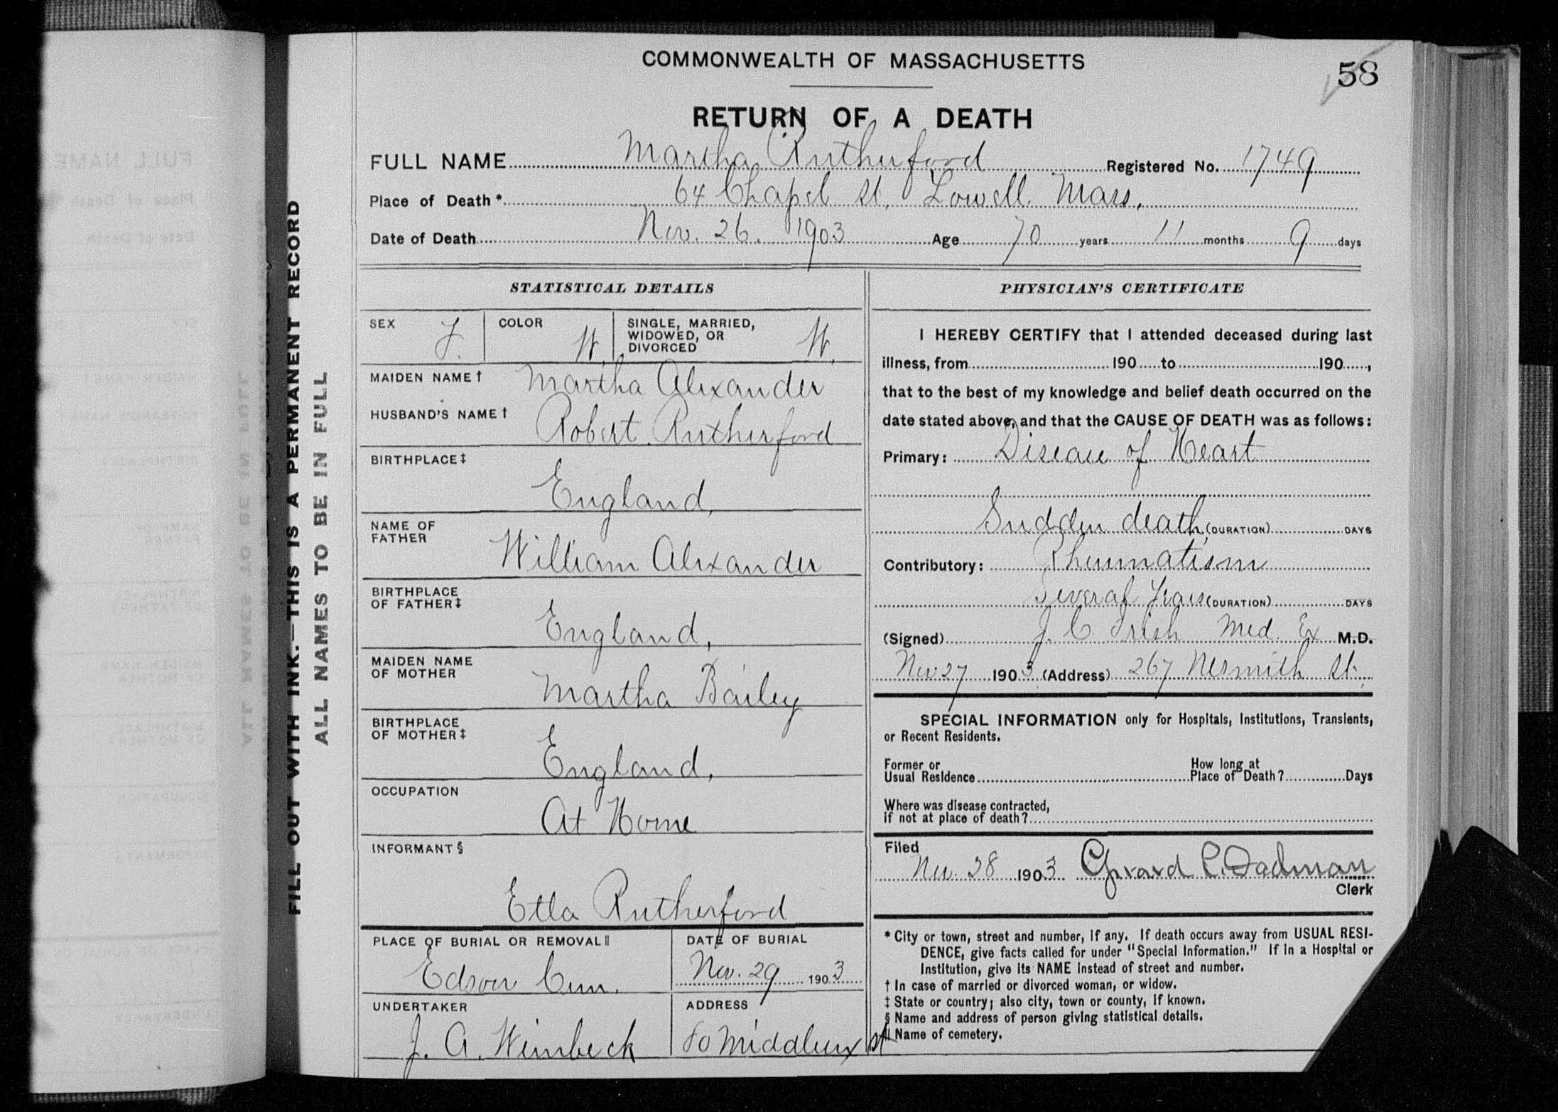 COMMONWEALTH OF MASSACHUSETTS
58
RETURN OF A DEATH
FULL NAME Martha Rutherford Registered No. 1749
Place of Death* 64 Chapel St. Lowell Mass.
Date of Death Nov. 26. 1903 Age 70 years 11 months 9 days
FILL OUT WITH INK.—THIS IS A PERMANENT RECORD
ALL NAMES TO BE IN FULL
STATISTICAL DETAILS
SEX F. COLOR W. SINGLE, MARRIED, WIDOWED, OR DIVORCED W.
MAIDEN NAME† Martha Alexander
HUSBAND'S NAME† Robert Rutherford
BIRTHPLACE‡
England,
NAME OF FATHER
William Alexander
BIRTHPLACE OF FATHER‡
England,
MAIDEN NAME OF MOTHER
Martha Bailey
BIRTHPLACE OF MOTHER‡
England,
OCCUPATION
At Home
INFORMANT§
Etta Rutherford
PLACE OF BURIAL OR REMOVAL‖ DATE OF BURIAL
Edson Cem. Nov. 29 1903
UNDERTAKER ADDRESS
J. A. Weinbeck 80 Middlesex St
PHYSICIAN'S CERTIFICATE
I HEREBY CERTIFY that I attended deceased during last
illness, from 190 to 190 ,
that to the best of my knowledge and belief death occurred on the
date stated above, and that the CAUSE OF DEATH was as follows:
Primary: Disease of Heart
Sudden death, (DURATION) DAYS
Contributory: Rheumatism
Several Years (DURATION) DAYS
(Signed) J. C. Irish Med. Ex M.D.
Nov 27 1903 (Address) 267 Nesmith St.
SPECIAL INFORMATION only for Hospitals, Institutions, Transients,
or Recent Residents.
Former or Usual Residence How long at Place of Death? Days
Where was disease contracted,
if not at place of death?
Filed
Nov. 28 1903 Girard P. Dadman
Clerk
* City or town, street and number, if any. If death occurs away from USUAL RESI-
DENCE, give facts called for under "Special Information." If in a Hospital or
Institution, give its NAME instead of street and number.
† In case of married or divorced woman, or widow.
‡ State or country; also city, town or county, if known.
§ Name and address of person giving statistical details.
‖ Name of cemetery.